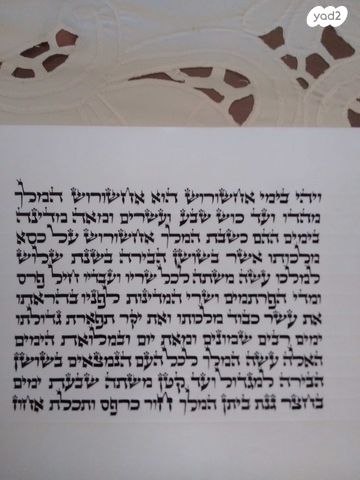 yad2
ויהי בימי אחשורוש הוא אחשורוש המלך
מהדו ועד כוש שבע ועשרים ומאה מדינה
בימים ההם כשבת המלך אחשורוש על כסא
מלכותו אשר בשושן הבירה בשנת שלוש
למלכו עשה משתה לכל שריו ועבדיו חיל פרס
ומדי הפרתמים ושרי המדינות לפניו בהראתו
את עשר כבוד מלכותו ואת יקר תפארת גדולתו
ימים רבים שמונים ומאת יום ובמלואת הימים
האלה עשה המלך לכל העם הנמצאים בשושן
הבירה למגדול ועד קטן משתה שבעת ימים
בחצר גנת ביתן המלך חור כרפס ותכלת אחוז